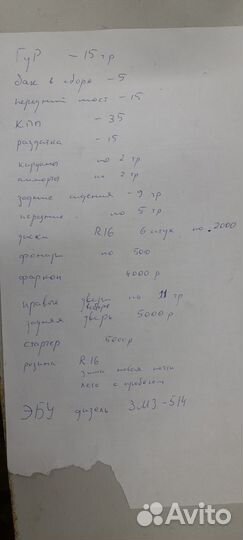 ГуР - 15 тр
бак в сборе - 5
передний мост - 15
КПП - 35
раздатка - 15
карданы по 2 тр
аморты по 2 тр
задние сидения - 9 тр
передние по 5 тр.
диски R16 6 штук по 2000
фонари по 500
фаркоп 4000 р
правые двери по 11 тр
задняя дверь 5000 р
стартер 5000р
резина R16
зима новая почти
лето с пробегом
ЭБУ дизель ЗМЗ-514
Avito